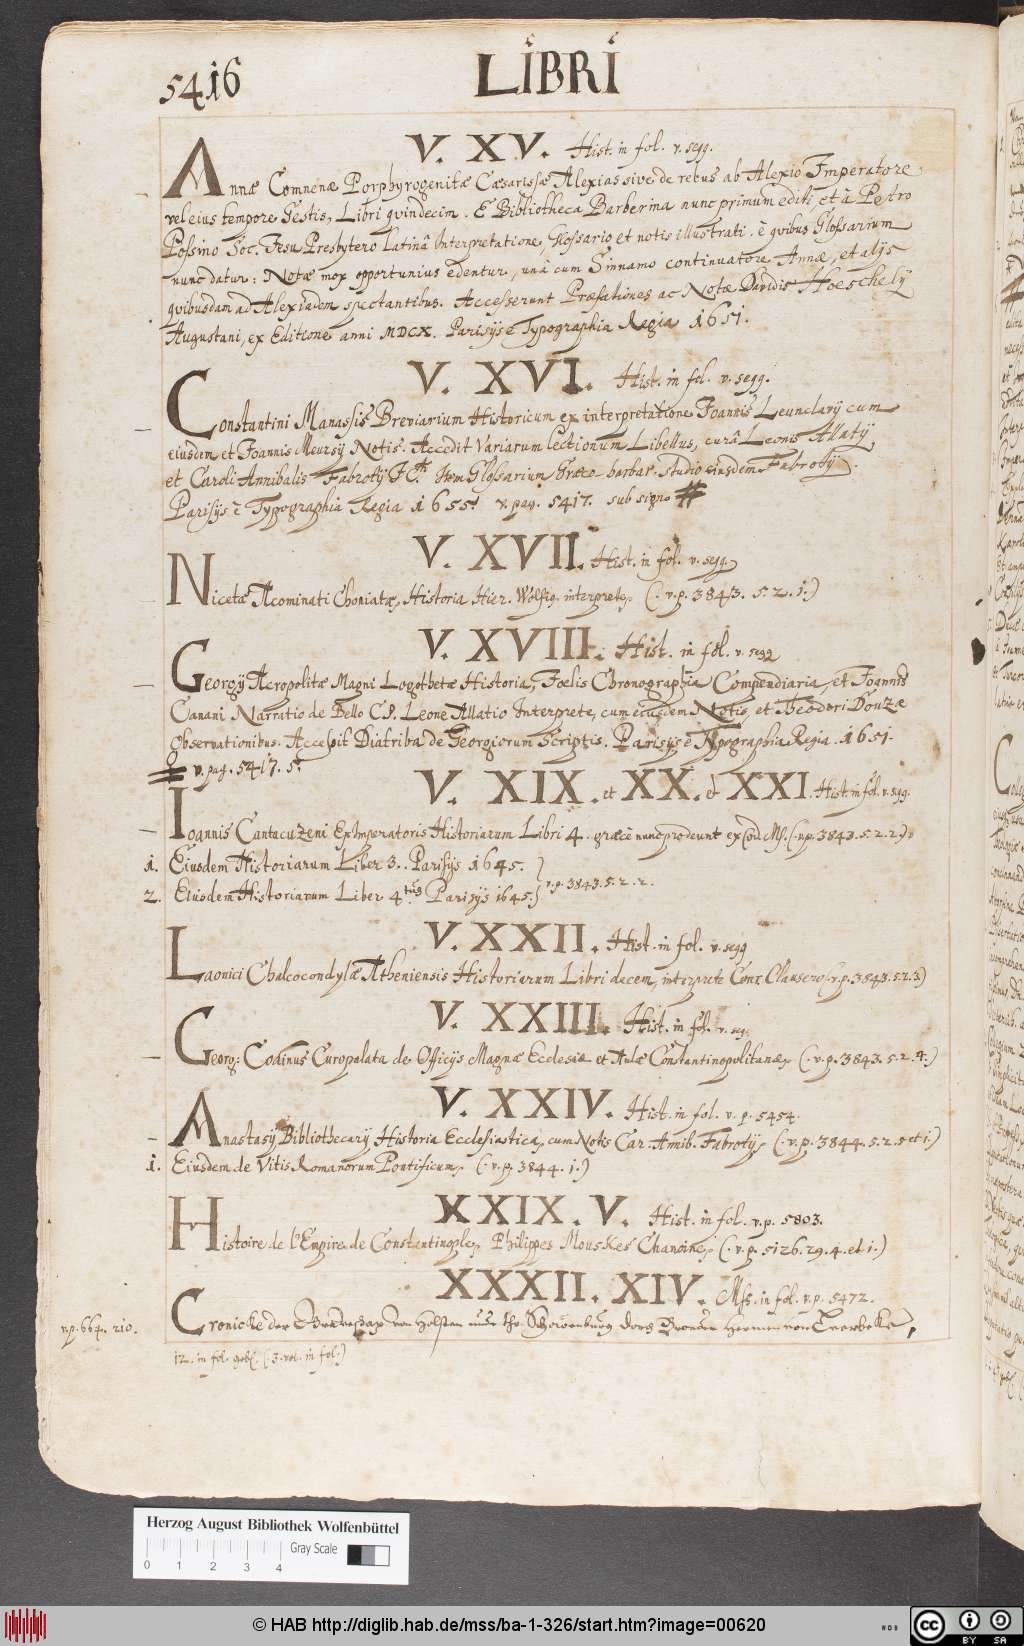 5416
LIBRI
V. XV. Hist. in fol. v. segg.
Annæ Comnenæ Porphyrogenitæ Cæsarissæ Alexias sive de rebus ab Alexio Imperatore
vel eius tempore Gestis, Libri quindecim. E Bibliotheca Barberina nunc primum editi, et à Petro
Possino Soc. Jesu Presbytero latinâ Interpretatione, Glossario et notis illustrati. è quibus Glossarium
nunc datur: Notæ mox opportunius edentur, unà cum Sinnamo continuatore Annæ, et alijs
quibusdam ad Alexiadem spectantibus. Accesserunt Præfationes ac Notæ Davidis Hoeschelij
Augustani, ex Editione anni MDCX. Parisijs è Typographia Regia 1651.
V. XVI. Hist. in fol. v. segg.
Constantini Manassis Breviarium Historicum ex interpretatione Joannis Leunclavij cum
eiusdem et Joannis Meursij Notis. Accedit Variarum lectionum Libellus, curâ Leonis Allatij,
et Caroli Annibalis Fabrotij JCti. Item Glossarium Græco-barbar. studio eiusdem Fabrotij.
Parisijs è Typographia Regia 1655. v. pag. 5417. sub signo #
V. XVII. Hist. in fol. v. segg.
Nicetæ Acominati Choniatæ, Historia Hier. Wolfio interprete, (. v. p. 3843. 5. 2. 1.)
V. XVIII. Hist. in fol. v. segg
Georgij Acropolitæ Magni Logothetæ Historia, Joelis Chronographia Compendiaria, et Joannis
Canani Narratio de Bello CP. Leone Allatio Interprete, cum eiusdem Notis, et Theodori Douzæ
Observationibus. Accessit Diatriba de Georgiorum Scriptis. Parisijs è Typographia Regia. 1651.
v. pag. 5417. 5.
V. XIX. et XX. et XXI. Hist. in fol. v. segg.
Ioannis Cantacuzeni Eximperatoris Historiarum Libri 4. græcè nunc prodeunt ex Cod. Ms. (. v. p. 3843. 5. 2. 2.)
1. Eiusdem Historiarum Liber 3. Parisijs 1645.
2. Eiusdem Historiarum Liber 4tus Parisijs 1645. } v. p. 3843. 5. 2. 2.
V. XXII. Hist. in fol. v. segg
Laonici Chalcocondylæ Atheniensis Historiarum Libri decem, interprete Conr. Clausero (. v. p. 3843. 5. 2. 3.)
V. XXIII. Hist. in fol. v. seq.
Georg: Codinus Curopalata de Officijs Magnæ Ecclesiæ et Aulæ Constantinopolitanæ, (. v. p. 3843. 5. 2. 4.)
V. XXIV. Hist. in fol. v. p. 5454.
Anastasij Bibliothecarij Historia Ecclesiastica, cum Notis Car. Anib. Fabrotij, (. v. p. 3844. 5. 2. 5 et 1.)
1. Eiusdem de Vitis Romanorum Pontificum, (. v. p. 3844. 1.)
XXIX. V. Hist. in fol. v. p. 5803.
Histoire de l'Empire de Constantinople, Philippes Mouskes Chanoine, (. v. p. 5126. 29. 4. et 1.)
XXXII. XIV. Mss. in fol. v. p. 5472.
v. p. 664. 210. Cronicke der von Holsten
12. in fol. (. 3. vol. in fol.)
Herzog August Bibliothek Wolfenbüttel
Gray Scale
0 1 2 3 4
© HAB http://diglib.hab.de/mss/ba-1-326/start.htm?image=00620
cc BY SA